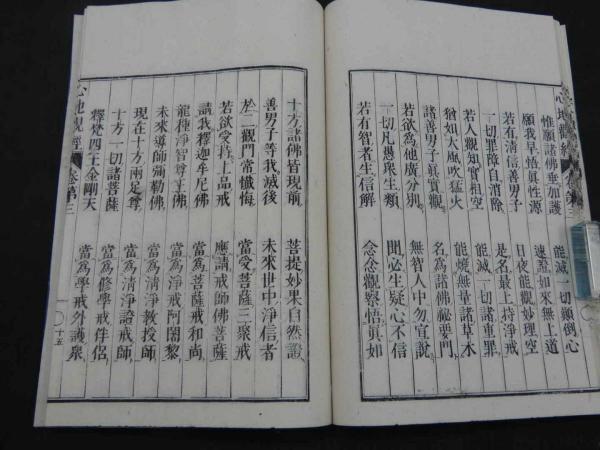 惟願諸佛垂加護　能滅一切顛倒心
願我早悟眞性源　速證如來無上道
若有清信善男子　日夜能觀妙理空
一切罪障自消除　是名最上持淨戒
若人觀知實相空　能滅一切諸重罪
猶如大風吹猛火　能燒無量諸草木
諸善男子眞實觀　名爲諸佛祕要門
若欲爲他廣分別　無智人中勿宣說
一切凡愚衆生類　聞必生疑心不信
若有智者生信解　念念觀察悟眞如
十方諸佛皆現前　菩提妙果自然證
善男子等我滅後　未來世中淨信者
於二觀門常懺悔　當受菩薩三聚戒
若欲受持上品戒　應請戒師佛菩薩
請我釋迦牟尼佛　當爲菩薩戒和尚
龍種淨智尊王佛　當爲淨戒阿闍黎
未來導師彌勒佛　當爲清淨教授師
現在十方兩足尊　當爲清淨證戒師
十方一切諸菩薩　當爲修學戒伴侶
釋梵四王金剛天　當爲學戒外護衆
心地觀經　卷第三　十五